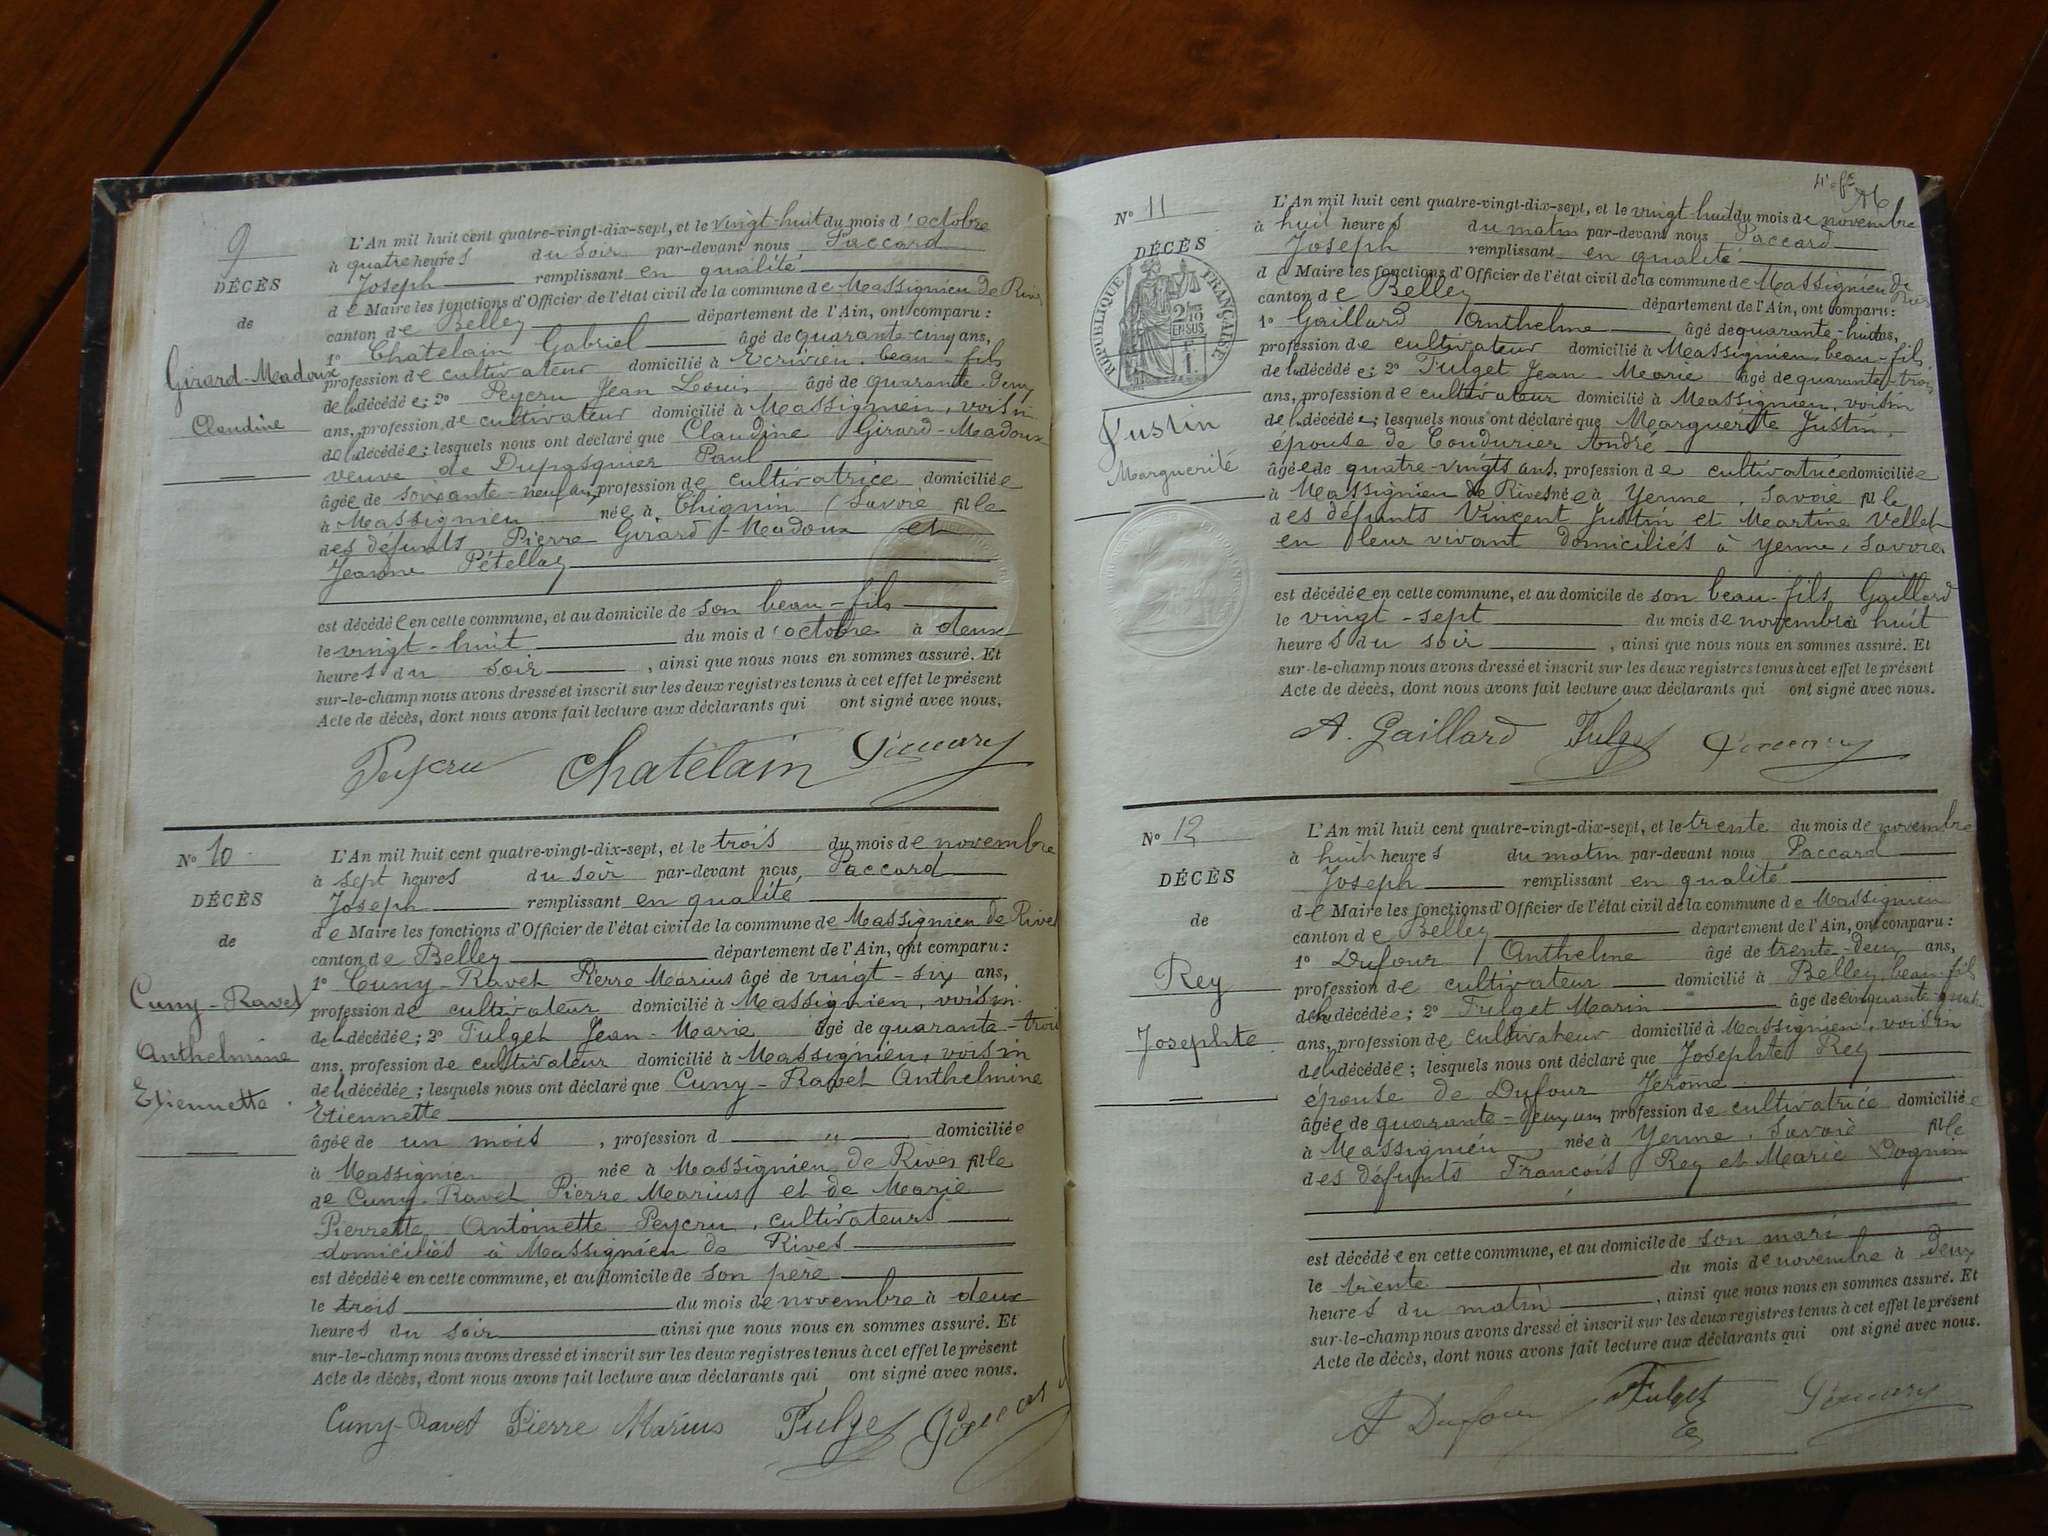 9
DÉCÈS
de
Girard-Madoux
Claudine
L'An mil huit cent quatre-vingt-dix-sept, et le vingt-huit du mois d'octobre
à quatre heures du soir par-devant nous Paccard
Joseph remplissant en qualité
de Maire les fonctions d'Officier de l'état civil de la commune de Massignieu de Rives
canton de Belley département de l'Ain, ont comparu :
1° Chatelain Gabriel âgé de quarante-cinq ans,
profession de cultivateur domicilié à Ecrivieu, beau-fils
de la décédée; 2° Peycru Jean Louis âgé de quarante-deux
ans, profession de cultivateur domicilié à Massignieu, voisin
de la décédée; lesquels nous ont déclaré que Claudine Girard-Madoux
veuve de Dupasquier Paul
âgée de soixante-neuf ans, profession de cultivatrice domiciliée
à Massignieu née à Chignin (Savoie fille
des défunts Pierre Girard-Madoux et
Jeanne Pétellaz
est décédée en cette commune, et au domicile de son beau-fils
le vingt-huit du mois d'octobre à deux
heures du soir, ainsi que nous nous en sommes assuré. Et
sur-le-champ nous avons dressé et inscrit sur les deux registres tenus à cet effet le présent
Acte de décès, dont nous avons fait lecture aux déclarants qui ont signé avec nous.
Peycru Chatelain
N° 10
DÉCÈS
de
Cuny-Ravet
Anthelmine
Etiennette
L'An mil huit cent quatre-vingt-dix-sept, et le trois du mois de novembre
à sept heures du soir par-devant nous, Paccard
Joseph remplissant en qualité
de Maire les fonctions d'Officier de l'état civil de la commune de Massignieu de Rives
canton de Belley département de l'Ain, ont comparu :
1° Cuny-Ravet Pierre Marius âgé de vingt-six ans,
profession de cultivateur domicilié à Massignieu, voisin
de la décédée; 2° Fulget Jean-Marie âgé de quarante-trois
ans, profession de cultivateur domicilié à Massignieu, voisin
de la décédée; lesquels nous ont déclaré que Cuny-Ravet Anthelmine
Etiennette
âgée de un mois, profession d " domiciliée
à Massignieu née à Massignieu de Rives fille
de Cuny-Ravet Pierre Marius et de Marie
Pierrette Antoinette Peycru, cultivateurs
domiciliés à Massignieu de Rives
est décédée en cette commune, et au domicile de son père
le trois du mois de novembre à deux
heures du soir ainsi que nous nous en sommes assuré. Et
sur-le-champ nous avons dressé et inscrit sur les deux registres tenus à cet effet le présent
Acte de décès, dont nous avons fait lecture aux déclarants qui ont signé avec nous.
Cuny-Ravet Pierre Marius Fulget
N° 11
DÉCÈS
RÉPUBLIQUE FRANÇAISE
2/10 EN SUS
Justin
Marguerite
L'An mil huit cent quatre-vingt-dix-sept, et le vingt-huit du mois de novembre
à huit heures du matin par-devant nous Paccard
Joseph remplissant en qualité
de Maire les fonctions d'Officier de l'état civil de la commune de Massignieu de Rives
canton de Belley département de l'Ain, ont comparu :
1° Gaillard Anthelme âgé de quarante-huit ans,
profession de cultivateur domicilié à Massignieu, beau-fils
de la décédée; 2° Fulget Jean-Marie âgé de quarante-trois
ans, profession de cultivateur domicilié à Massignieu, voisin
de la décédée; lesquels nous ont déclaré que Marguerite Justin,
épouse de Coudurier André
âgée de quatre-vingts ans, profession de cultivatrice domiciliée
à Massignieu de Rives née à Yenne, Savoie fille
des défunts Vincent Justin et Martine Vellet
en leur vivant domiciliés à Yenne, Savoie
est décédée en cette commune, et au domicile de son beau-fils Gaillard
le vingt-sept du mois de novembre à huit
heures du soir, ainsi que nous nous en sommes assuré. Et
sur-le-champ nous avons dressé et inscrit sur les deux registres tenus à cet effet le présent
Acte de décès, dont nous avons fait lecture aux déclarants qui ont signé avec nous.
A. Gaillard Fulget
N° 12
DÉCÈS
de
Rey
Josephte
L'An mil huit cent quatre-vingt-dix-sept, et le trente du mois de novembre
à huit heures du matin par-devant nous Paccard
Joseph remplissant en qualité
de Maire les fonctions d'Officier de l'état civil de la commune de Massignieu
canton de Belley département de l'Ain, ont comparu :
1° Dufour Anthelme âgé de trente-deux ans,
profession de cultivateur domicilié à Belley, beau-fils
de la décédée; 2° Fulget Marin âgé de cinquante-quatre
ans, profession de cultivateur domicilié à Massignieu, voisin
de la décédée; lesquels nous ont déclaré que Josephte Rey
épouse de Dufour Jérôme
âgée de quarante-deux ans, profession de cultivatrice domiciliée
à Massignieu née à Yenne, Savoie fille
des défunts François Rey et Marie Dognin
est décédée en cette commune, et au domicile de son mari
le trente du mois de novembre à deux
heures du matin, ainsi que nous nous en sommes assuré. Et
sur-le-champ nous avons dressé et inscrit sur les deux registres tenus à cet effet le présent
Acte de décès, dont nous avons fait lecture aux déclarants qui ont signé avec nous.
A Dufour Fulget